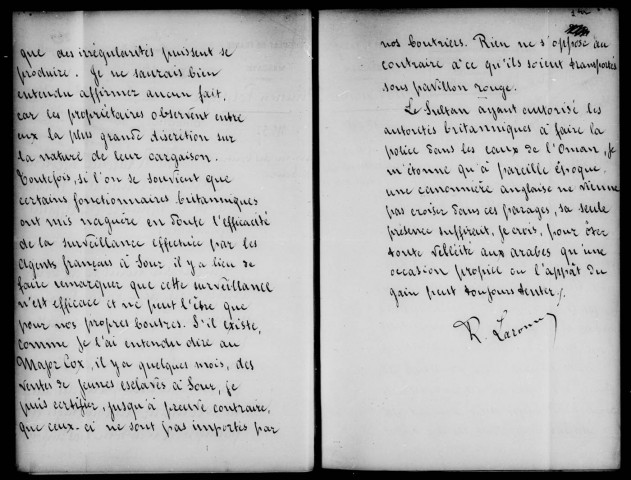 que des irrégularités puissent se
produire. Je ne saurais bien
entendu affirmer aucun fait,
car les propriétaires observent entre
eux la plus grande discrétion sur
la nature de leur cargaison.
Toutefois, si l'on se souvient que
certains fonctionnaires britanniques
ont mis naguère en doute l'efficacité
de la surveillance effectuée par les
agents français à Sour, il y a lieu de
faire remarquer que cette surveillance
n'est efficace et ne peut l'être que
pour nos propres boutres. S'il existe,
comme je l'ai entendu dire au
Major Cox, il y a quelques mois, des
ventes de jeunes esclaves à Sour, je
puis certifier, jusqu'à preuve contraire,
que ceux-ci ne sont pas importés par
nos boutriers. Rien ne s'oppose au
contraire à ce qu'ils soient transportés
sous pavillon rouge.
Le Sultan ayant autorisé les
autorités britanniques à faire la
police dans les eaux de l'Oman, je
m'étonne qu'à pareille époque
une canonnière anglaise ne vienne
pas croiser dans ces parages, sa seule
présence suffirait, je crois, pour ôter
toute velléité aux arabes qu'une
occasion propice ou l'appât du
gain peut toujours tenter./.
R. Laronce